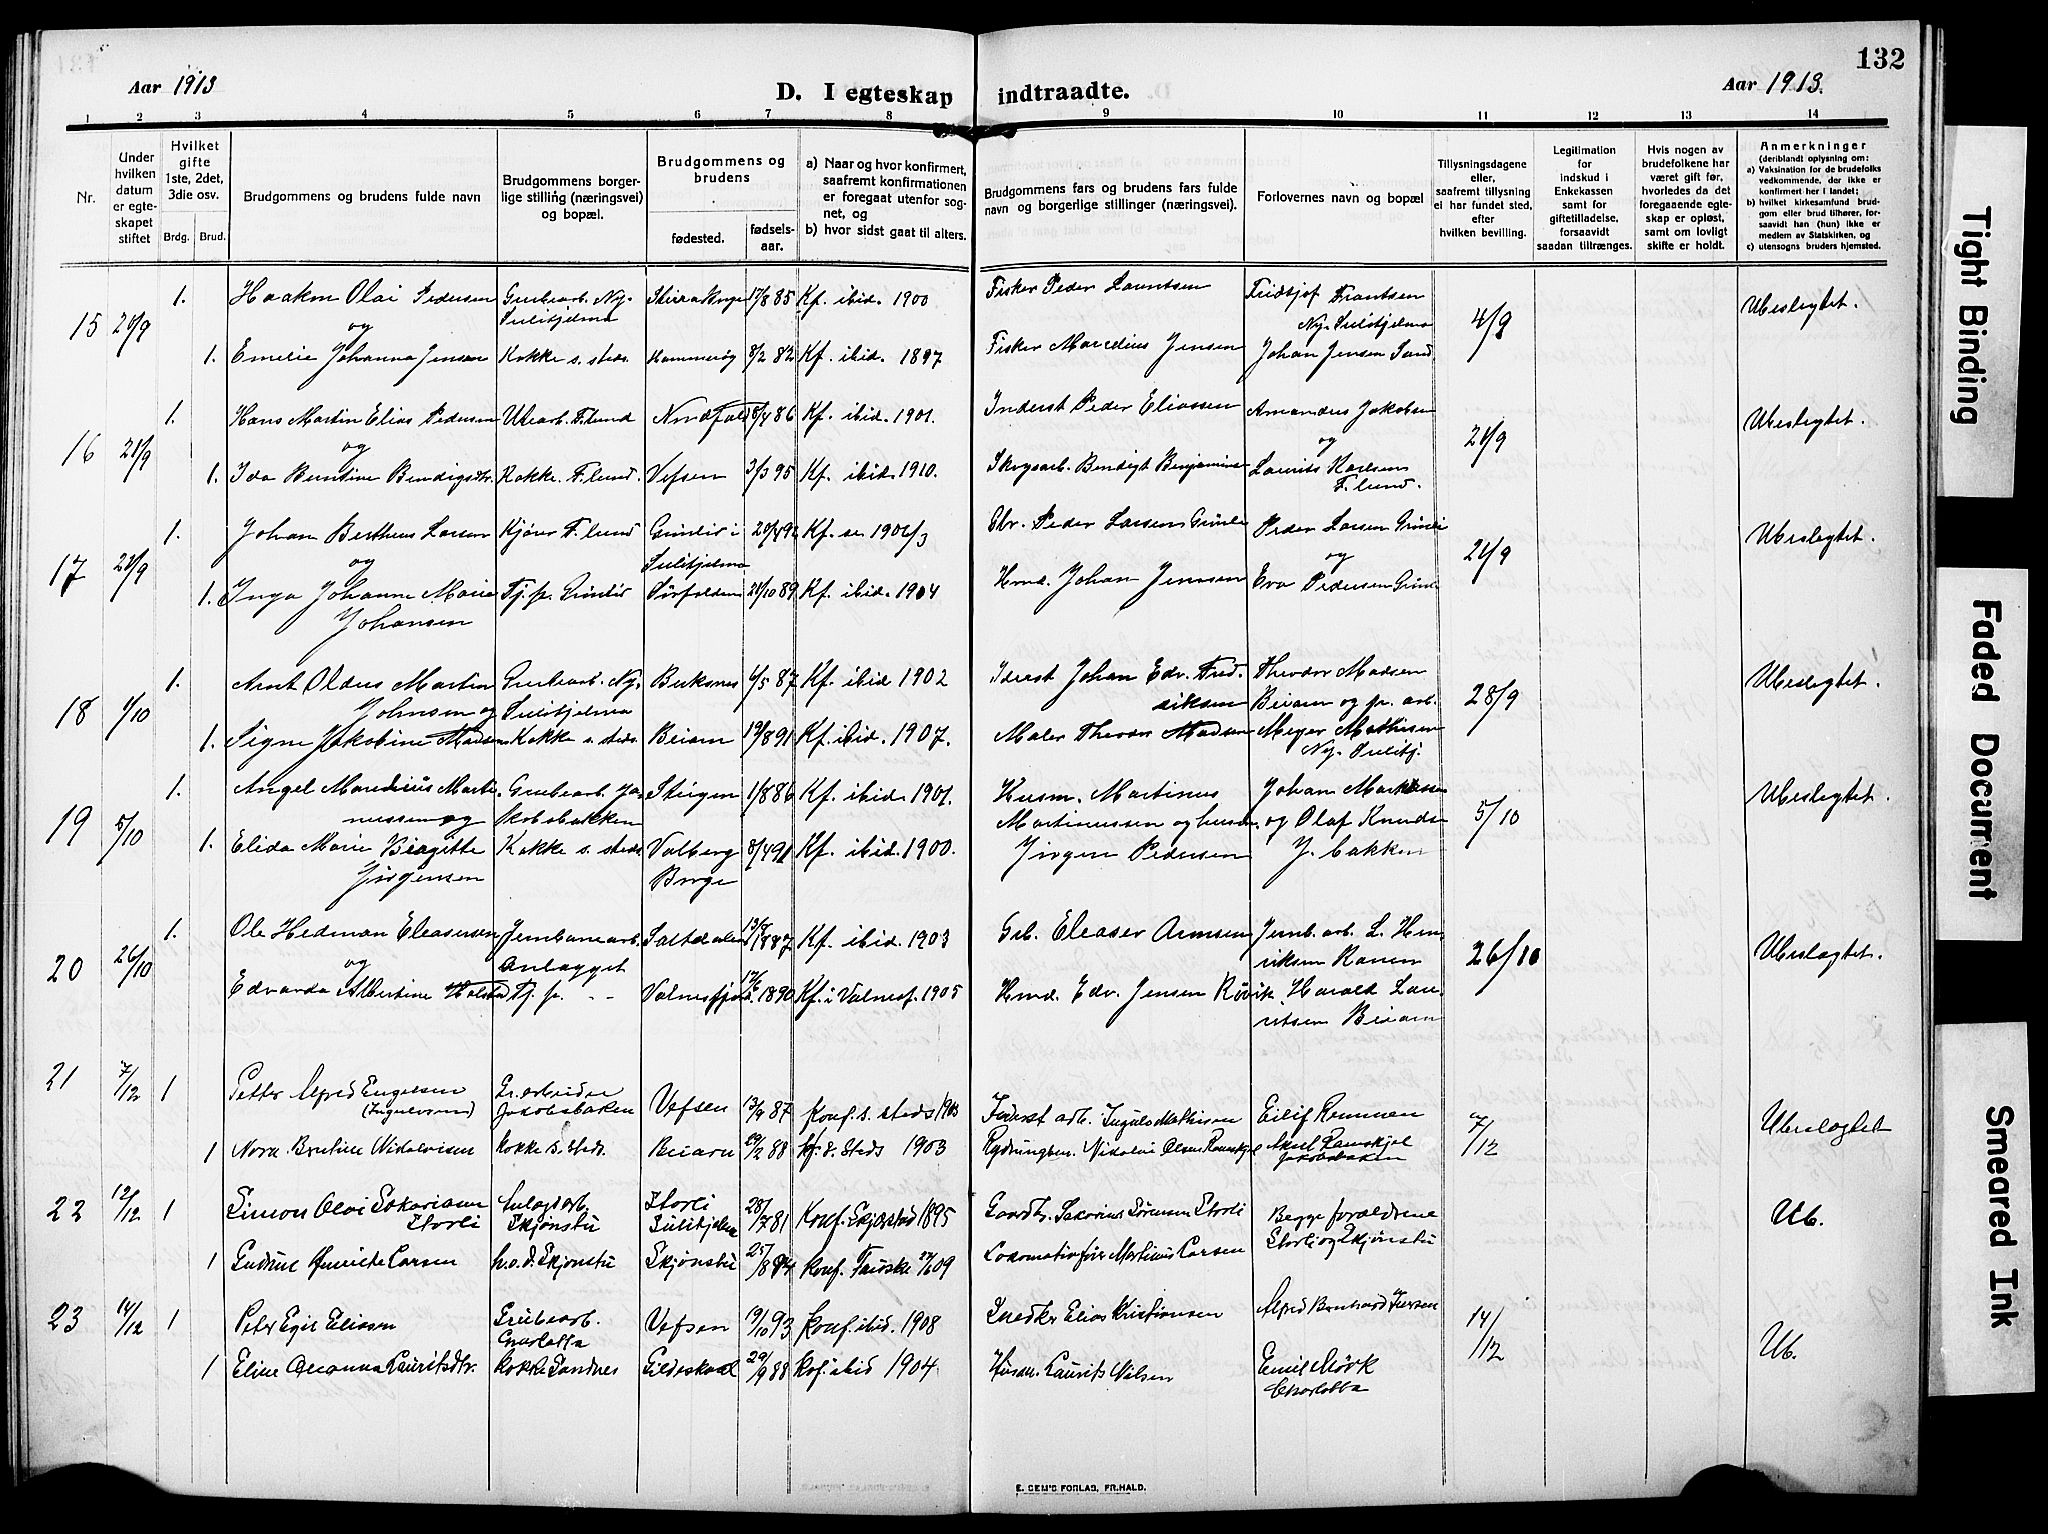 132
Aar 1913
D. I egteskap indtraadte.
Aar 1913.
1 2 3 4 5 6 7 8 9 10 11 12 13 14
Nr.
Under hvilken datum er egteskapet stiftet
Hvilket gifte 1ste, 2det, 3die osv.
Brdg. Brud.
Brudgommens og brudens fulde navn
Brudgommens borgerlige stilling (næringsvei) og bopæl.
Brudgommens og brudens
fødested.
fødselsaar.
a) Naar og hvor konfirmert, saafremt konfirmationen er foregaat utenfor sognet, og
b) hvor sidst gaat til alters.
Brudgommens fars og brudens fars fulde navn og borgerlige stillinger (næringsvei).
Forlovernes navn og bopæl
Tillysningsdagene eller, saafremt tillysning ei har fundet sted, efter hvilken bevilling.
Legitimation for indskud i Enkekassen samt for giftetilladelse, forsaavidt saadan tiltrænges.
Hvis nogen av brudefolkene har været gift før, hvorledes da det foregaaende egteskap er opløst, samt om lovligt skifte er holdt.
Anmerkninger
(deriblandt oplysning om:
a) Vaksination for de brudefolks vedkommende, der ikke er konfirmert her i landet;
b) hvilket kirkesamfund brudgom eller brud tilhører, forsaavidt han (hun) ikke er medlem av Statskirken, og
c) utensogns bruders hjemsted.
15 21/9 1. Haakon Olai Pedersen Grubearb. Ny- 17/8 85 Kf. ibid. 1900 Fisker Peder Lauritsen Fridtjof Frantsen 4/9 Ubeslegtet.
og Sulitjelma Ny-Sulitjelma
1. Emelie Johanna Jensen Kokke s. steds. Hammerøy 8/2 82 Kf. ibid. 1897 Fisker Marcelius Jensen Johan Jensen Sand
16 21/9 1. Hans Martin Elias Pedersen Utearb. F.lund Nordfold 8/4 86 Kf. ibid. 1901. Inderst Peder Eliassen Amandus Jakobsen 21/9 Ubeslegtet.
og og
1. Ida Bentine Bendigsdtr. Kokke. F.lund. Vefsen 3/3 95 Kf. ibid. 1910. Skogsarb. Bendigt Benjaminsen Laurits Karlsen
F.lund.
17 21/9 1. Johan Bertheus Larsen Kjører F.lund Grønlid i Peder Larsen Grønli Peder Larsen Grønli 21/9 Ubeslegtet.
og Sulitjelma og
1. Inga Johanne Marie Tj. p. Grønlid Sørfolden 21/10 89 Kf. ibid. 1904 Hmd. Johan Jensen Eva Pedersen Grønli
Johansen
18 1/10 1. Arnt Oldus Martin Grubearb. Ny- Buksnes 6/5 87 Kf. ibid 1902 Johan Edv. Fred- Theodor Madsen 28/9 Ubeslegtet.
Johnsen og Sulitjelma riksen Beiarn og gr. arb.
1. Signe Jakobine Madsen Kokke s. steds. Beiarn 19/8 91 Kf. ibid. 1907. Maler Theodor Madsen Meyer Mathisen
Ny. Sulitj.
19 5/10 1. Angel Maredius Marti- Grubearb. Ja- Steigen 1/8 86 Kf. ibid. 1901. Husm. Martinus Johan 5/10 Ubeslegtet.
nussen og kobsbakken Martinussen og og Olaf Knuds
1. Elida Marie Birgitte Kokke s. steds Valberg 8/4 91 Kf. ibid. 1900. Jørgen Pedersen J. bakken
Jørgensen Borge
20 26/10 1. Ole Hedman Eleasersen Jernbanearb. Saltdalen 1887 Kf. ibid. 1903 Eleaser Arnsen Jernb. arb. L. Hen- 26/10 Ubeslegtet.
og Anlægget riksen Ranen
1. Edvarda Albertine Tj. p. Valnesfjord 1890 Kf. i Valnesf. 1905 Hmd. Edv. Jensen Røvik Harald Lau-
ritsen Beiarn
21 7/12 1 Petter Alfred Engelsen Gr. arbeider Vefsen 13/9 87 Konf. s. steds 1903 Inderst arb. Inguls Mathisen Eilif 7/12 Ubeslegtet
Jakobsbaken
1 Nora Bentine Nikolaisen Kokke s. steds. Beiarn 29/2 88 Kf. s. Steds 1903 Nikolai Olsen Axel Ramskjel
Jakobsbaken
22 12/12 1 Simon Olai Sakariasen Storli 28/7 81 Konf. Skjerstad 1895 Gaardbr. Sakarias Sørensen Storli Begge forældrene Ub.
Storli Skjønstu Sulitjelma Storli og Skjønstu
1 Gudrun Henriette Larsen h.o.d. Skjønstu Skjønstu 25/8 94 Konf. Fauske 09 Lokomotivfører Martinus Larsen
23 14/12 1 Peter Egil Eliasen Grubearb. Vefsen 19/10 93 Konf. ibid. 1908 Snedker Elias Kristiansen Alfred Bernhard Iversen 14/12 Ub.
Charlotta
1 Eline Oleanna Lauritsdtr. Kokke Sandnes Gildeskaal 29/9 88 Kof. ibid 1904 Husm. Laurits Nilsen Emil Mørk
Charlotta
E. SEM'S FORLAG, FR.HALD.
Tight Binding
Faded Document
Smeared Ink